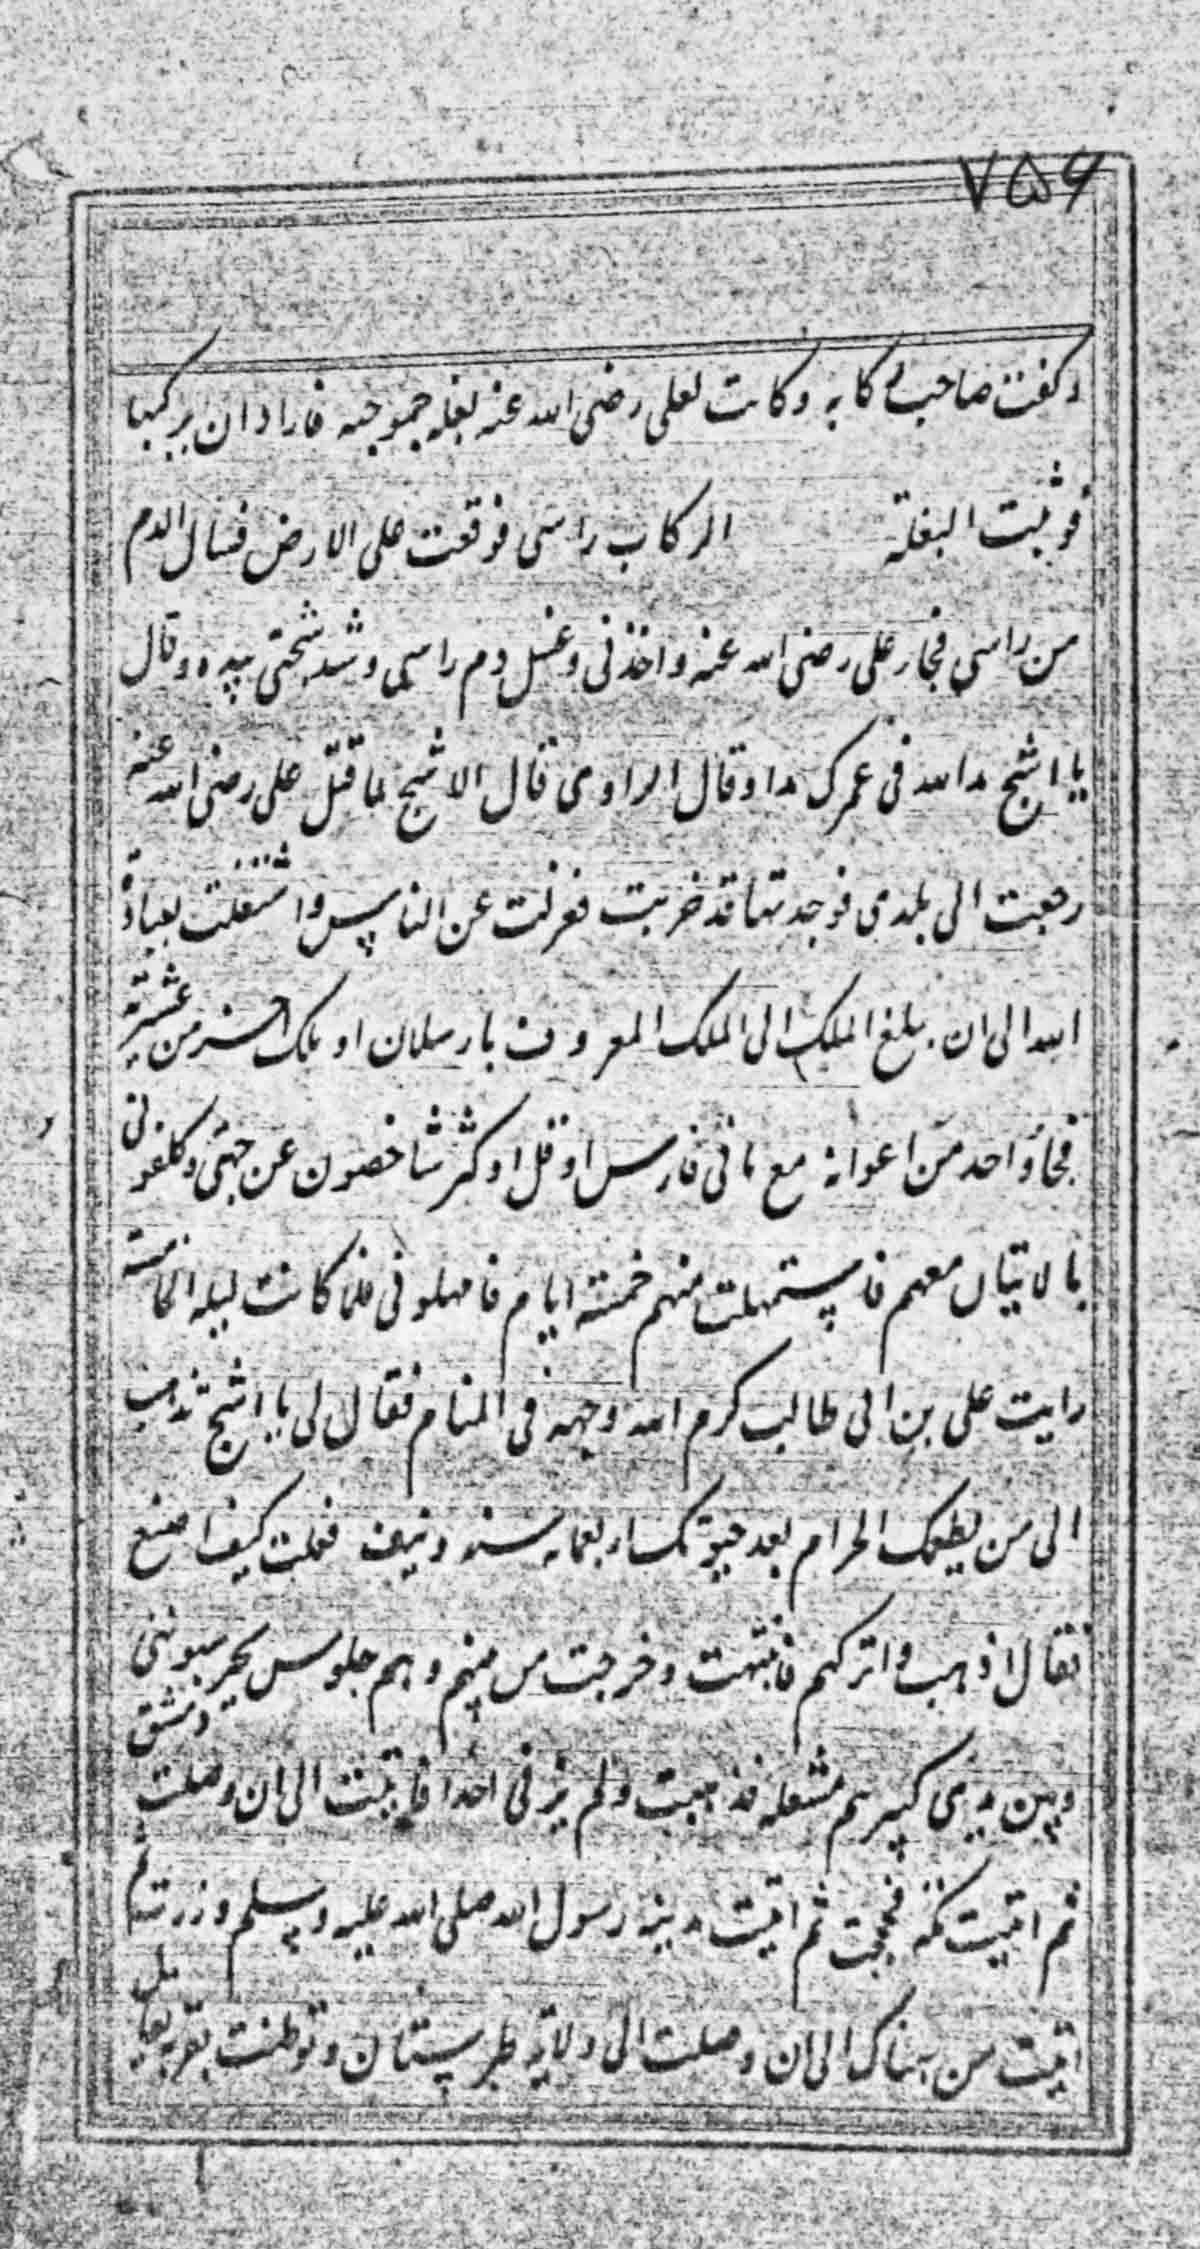 ۷۵۶
وکنت صاحب رکابه وکانت لعلی رضی الله عنه بغله جموحه فاراد ان یرکبها
فوثبت البغلة الرکاب راسی فوقعت علی الارض فسال الدم
من راسی فجار علی رضی الله عنه واخذنی وغسل دم راسی وشد شجتی بیده وقال
یا اشج مد الله فی عمرک مدا وقال الراوی قال الاشج لما قتل علی رضی الله عنه
رجعت الی بلدی فوجدتها قد خربت فعزلت عن الناس واشتغلت بعبادة
الله الی ان بلغ الملک الی الملک المعروف بارسلان او ملک اخر من عشیرته
فجاؤ احد من اعوانه مع مائی فارس او قل او کثر شاخصون عن جهتی وکلفونی
بالاتیان معهم فاستمهلت منهم خمسة ایام فامهلونی فلما کانت لیله الخامسة
رایت علی بن ابی طالب کرم الله وجهه فی المنام فقال لی یا اشج تذهب
الی من یطعمک الحرام بعد حیوتک اربعمایه سنه ونیف فقلت کیف اصنع
فقال اذهب واترکهم فانتبهت وخرجت من بینهم وهم جلوس یحرسوننی
وبین یدی کبیرهم مشعله فذهبت ولم یرنی احدا فاتیت الی ان وصلت دمشق
ثم اتیت مکه فحججت ثم اتیت مدینه رسول الله صلی الله علیه وسلم وزرته ثم
اتیت من هناک الی ان وصلت الی ولایه طبرستان وتوطنت بقریه